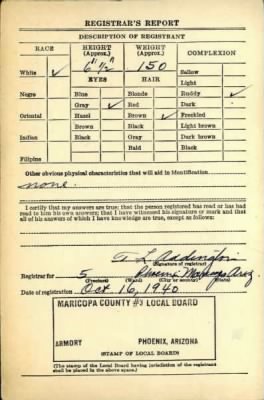 REGISTRAR'S REPORT
DESCRIPTION OF REGISTRANT
RACE HEIGHT (Approx.) WEIGHT (Approx.) COMPLEXION
White ✓ 150 Sallow
EYES HAIR Light
Negro Blue Blonde Ruddy ✓
Gray ✓ Red Dark
Oriental Hazel Brown ✓ Freckled
Brown Black Light brown
Indian Black Gray Dark brown
Bald Black
Filipino
Other obvious physical characteristics that will aid in identification
none.
I certify that my answers are true; that the person registered has read or has had
read to him his own answers; that I have witnessed his signature or mark and that
all of his answers of which I have knowledge are true, except as follows:
L Addington
(Signature of registrar)
Registrar for 5 Phoenix Maricopa Ariz
(Precinct) (Ward) (City or county) (State)
Date of registration Oct 16, 1940
MARICOPA COUNTY #3 LOCAL BOARD
ARMORY PHOENIX, ARIZONA
(STAMP OF LOCAL BOARD)
(The stamp of the Local Board having jurisdiction of the registrant
shall be placed in the above space.)